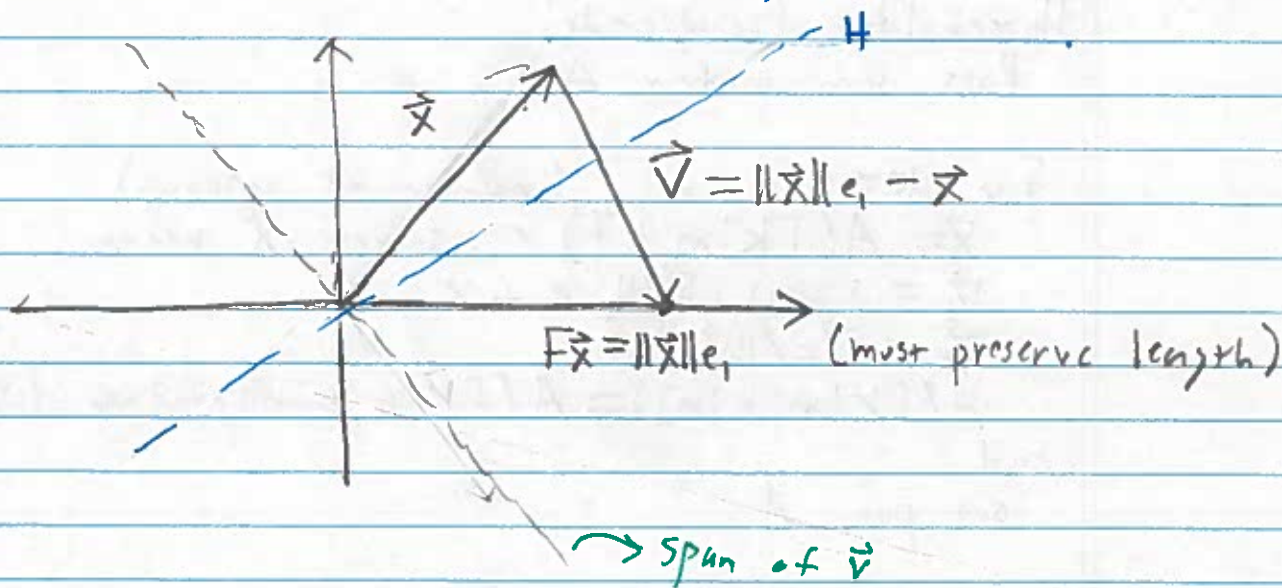 H
x⃗
V⃗ = ||x⃗||e₁ − x⃗
Fx⃗ = ||x⃗||e₁ (must preserve length)
→ Span of v⃗